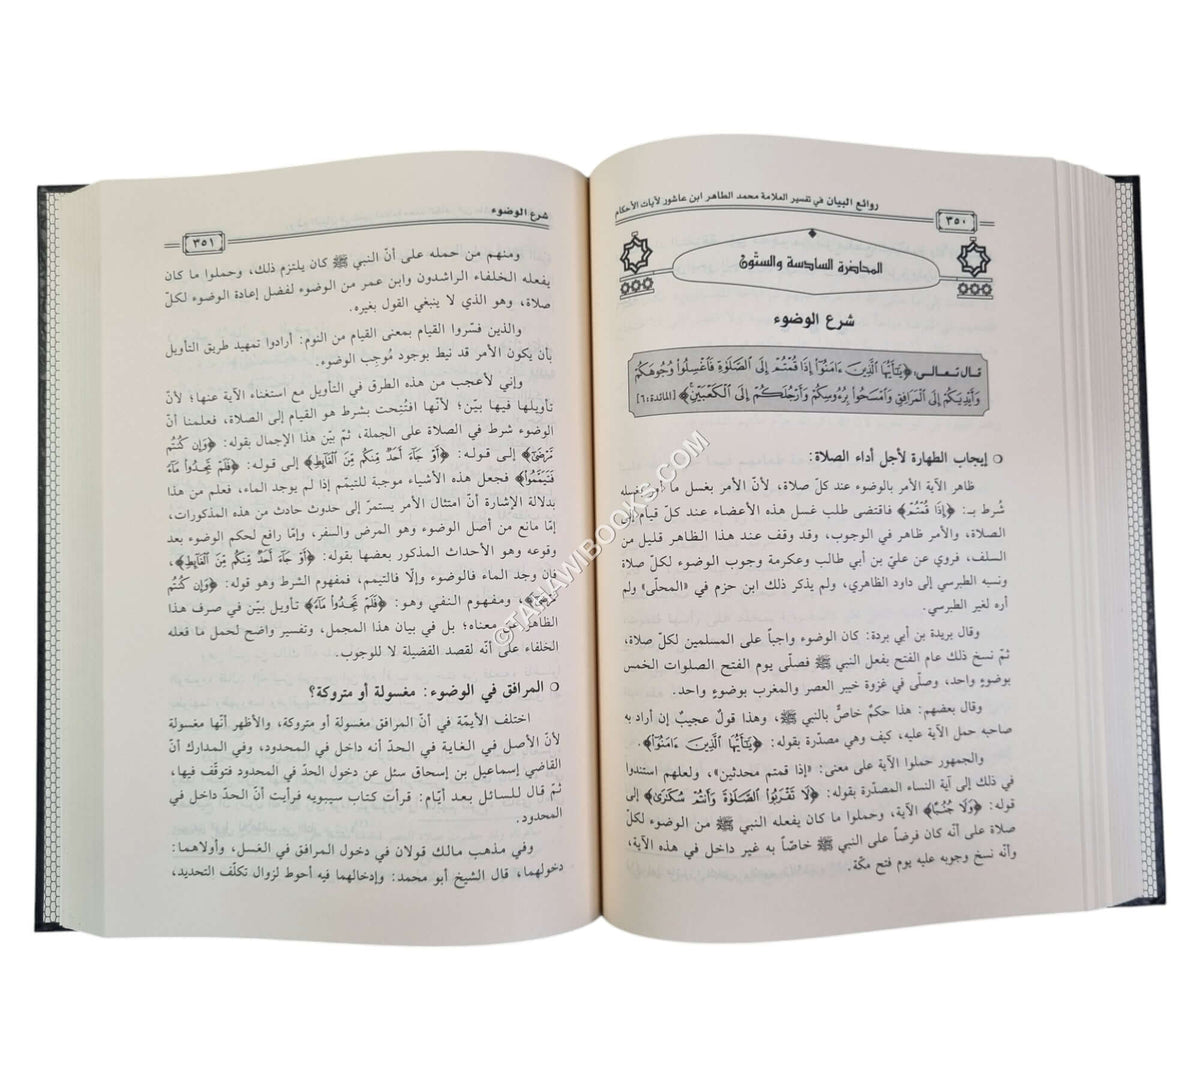 روائع البيان في تفسير العلامة محمد الطاهر ابن عاشور لآيات الأحكام
٣٥٠
المحاضرة السادسة والستون
شرع الوضوء
قال تعالى: ﴿يَٰٓأَيُّهَا ٱلَّذِينَ ءَامَنُوٓا۟ إِذَا قُمْتُمْ إِلَى ٱلصَّلَوٰةِ فَٱغْسِلُوا۟ وُجُوهَكُمْ
وَأَيْدِيَكُمْ إِلَى ٱلْمَرَافِقِ وَٱمْسَحُوا۟ بِرُءُوسِكُمْ وَأَرْجُلَكُمْ إِلَى ٱلْكَعْبَيْنِ﴾ [المائدة:٦]
○ إيجاب الطهارة لأجل أداء الصلاة:
ظاهر الآية الأمر بالوضوء عند كلّ صلاة، لأنّ الأمر بغسل ما أمر بغسله
شُرط بـ: ﴿إِذَا قُمْتُمْ﴾ فاقتضى طلب غسل هذه الأعضاء عند كلّ قيام إلى
الصلاة، والأمر ظاهر في الوجوب، وقد وقف عند هذا الظاهر قليل من
السلف، فروي عن عليّ بن أبي طالب وعكرمة وجوب الوضوء لكلّ صلاة
ونسبه الطبرسي إلى داود الظاهري، ولم يذكر ذلك ابن حزم في «المحلّى» ولم
أره لغير الطبرسي.
وقال بريدة بن أبي بردة: كان الوضوء واجباً على المسلمين لكلّ صلاة،
ثمّ نسخ ذلك عام الفتح بفعل النبي ﷺ فصلّى يوم الفتح الصلوات الخمس
بوضوءٍ واحد، وصلّى في غزوة خيبر العصر والمغرب بوضوءٍ واحد.
وقال بعضهم: هذا حكمٌ خاصٌّ بالنبي ﷺ، وهذا قولٌ عجيبٌ إن أراد به
صاحبه حمل الآية عليه، كيف وهي مصدّرة بقوله: ﴿يَٰٓأَيُّهَا ٱلَّذِينَ ءَامَنُوٓا۟﴾.
والجمهور حملوا الآية على معنى: «إذا قمتم محدثين»، ولعلهم استندوا
في ذلك إلى آية النساء المصدّرة بقوله: ﴿لَا تَقْرَبُوا۟ ٱلصَّلَوٰةَ وَأَنتُمْ سُكَٰرَىٰ﴾ إلى
قوله: ﴿وَلَا جُنُبًا﴾ الآية، وحملوا ما كان يفعله النبي ﷺ من الوضوء لكلّ
صلاة على أنّه كان فرضاً على النبي ﷺ خاصّاً به غير داخل في هذه الآية،
وأنّه نسخ وجوبه عليه يوم فتح مكّة.
شرع الوضوء
٣٥١
ومنهم من حمله على أنّ النبي ﷺ كان يلتزم ذلك، وحملوا ما كان
يفعله الخلفاء الراشدون وابن عمر من الوضوء لفضل إعادة الوضوء لكلّ
صلاة، وهو الذي لا ينبغي القول بغيره.
والذين فسّروا القيام بمعنى القيام من النوم: أرادوا تمهيد طريق التأويل
بأن يكون الأمر قد نيط بوجود مُوجِب الوضوء.
وإني لأعجب من هذه الطرق في التأويل مع استغناء الآية عنها؛ لأنّ
تأويلها فيها بيّن؛ لأنّها افتُتِحت بشرط هو القيام إلى الصلاة، فعلمنا أنّ
الوضوء شرط في الصلاة على الجملة، ثمّ بيّن هذا الإجمال بقوله: ﴿وَإِن كُنتُم
مَّرْضَىٰٓ﴾ إلى قوله: ﴿أَوْ جَآءَ أَحَدٌ مِّنكُم مِّنَ ٱلْغَآئِطِ﴾ إلى قوله: ﴿فَلَمْ تَجِدُوا۟ مَآءً
فَتَيَمَّمُوا۟﴾ فجعل هذه الأشياء موجبة للتيمّم إذا لم يوجد الماء، فعلم من هذا
بدلالة الإشارة أنّ امتثال الأمر يستمرّ إلى حدوث حادث من هذه المذكورات،
إمّا مانع من أصل الوضوء وهو المرض والسفر، وإمّا رافع لحكم الوضوء بعد
وقوعه وهو الأحداث المذكور بعضها بقوله: ﴿أَوْ جَآءَ أَحَدٌ مِّنكُم مِّنَ ٱلْغَآئِطِ﴾،
فإن وجد الماء فالوضوء وإلّا فالتيمم، فمفهوم الشرط وهو قوله: ﴿وَإِن كُنتُم
مَّرْضَىٰٓ﴾، ومفهوم النفي وهو: ﴿فَلَمْ تَجِدُوا۟ مَآءً﴾ تأويل بيّن في صرف هذا
الظاهر عن معناه؛ بل في بيان هذا المجمل، وتفسير واضح لحمل ما فعله
الخلفاء على أنّه لقصد الفضيلة لا للوجوب.
○ المرافق في الوضوء: مغسولة أو متروكة؟
اختلف الأيمّة في أنّ المرافق مغسولة أو متروكة، والأظهر أنّها مغسولة
لأنّ الأصل في الغاية في الحدّ أنه داخل في المحدود، وفي المدارك أنّ
القاضي إسماعيل بن إسحاق سئل عن دخول الحدّ في المحدود فتوقّف فيها،
ثمّ قال للسائل بعد أيّام: قرأت كتاب سيبويه فرأيت أنّ الحدّ داخل في
المحدود.
وفي مذهب مالك قولان في دخول المرافق في الغسل، وأولاهما:
دخولهما، قال الشيخ أبو محمد: وإدخالهما فيه أحوط لزوال تكلّف التحديد،
©TAHAWIBOOKS.COM